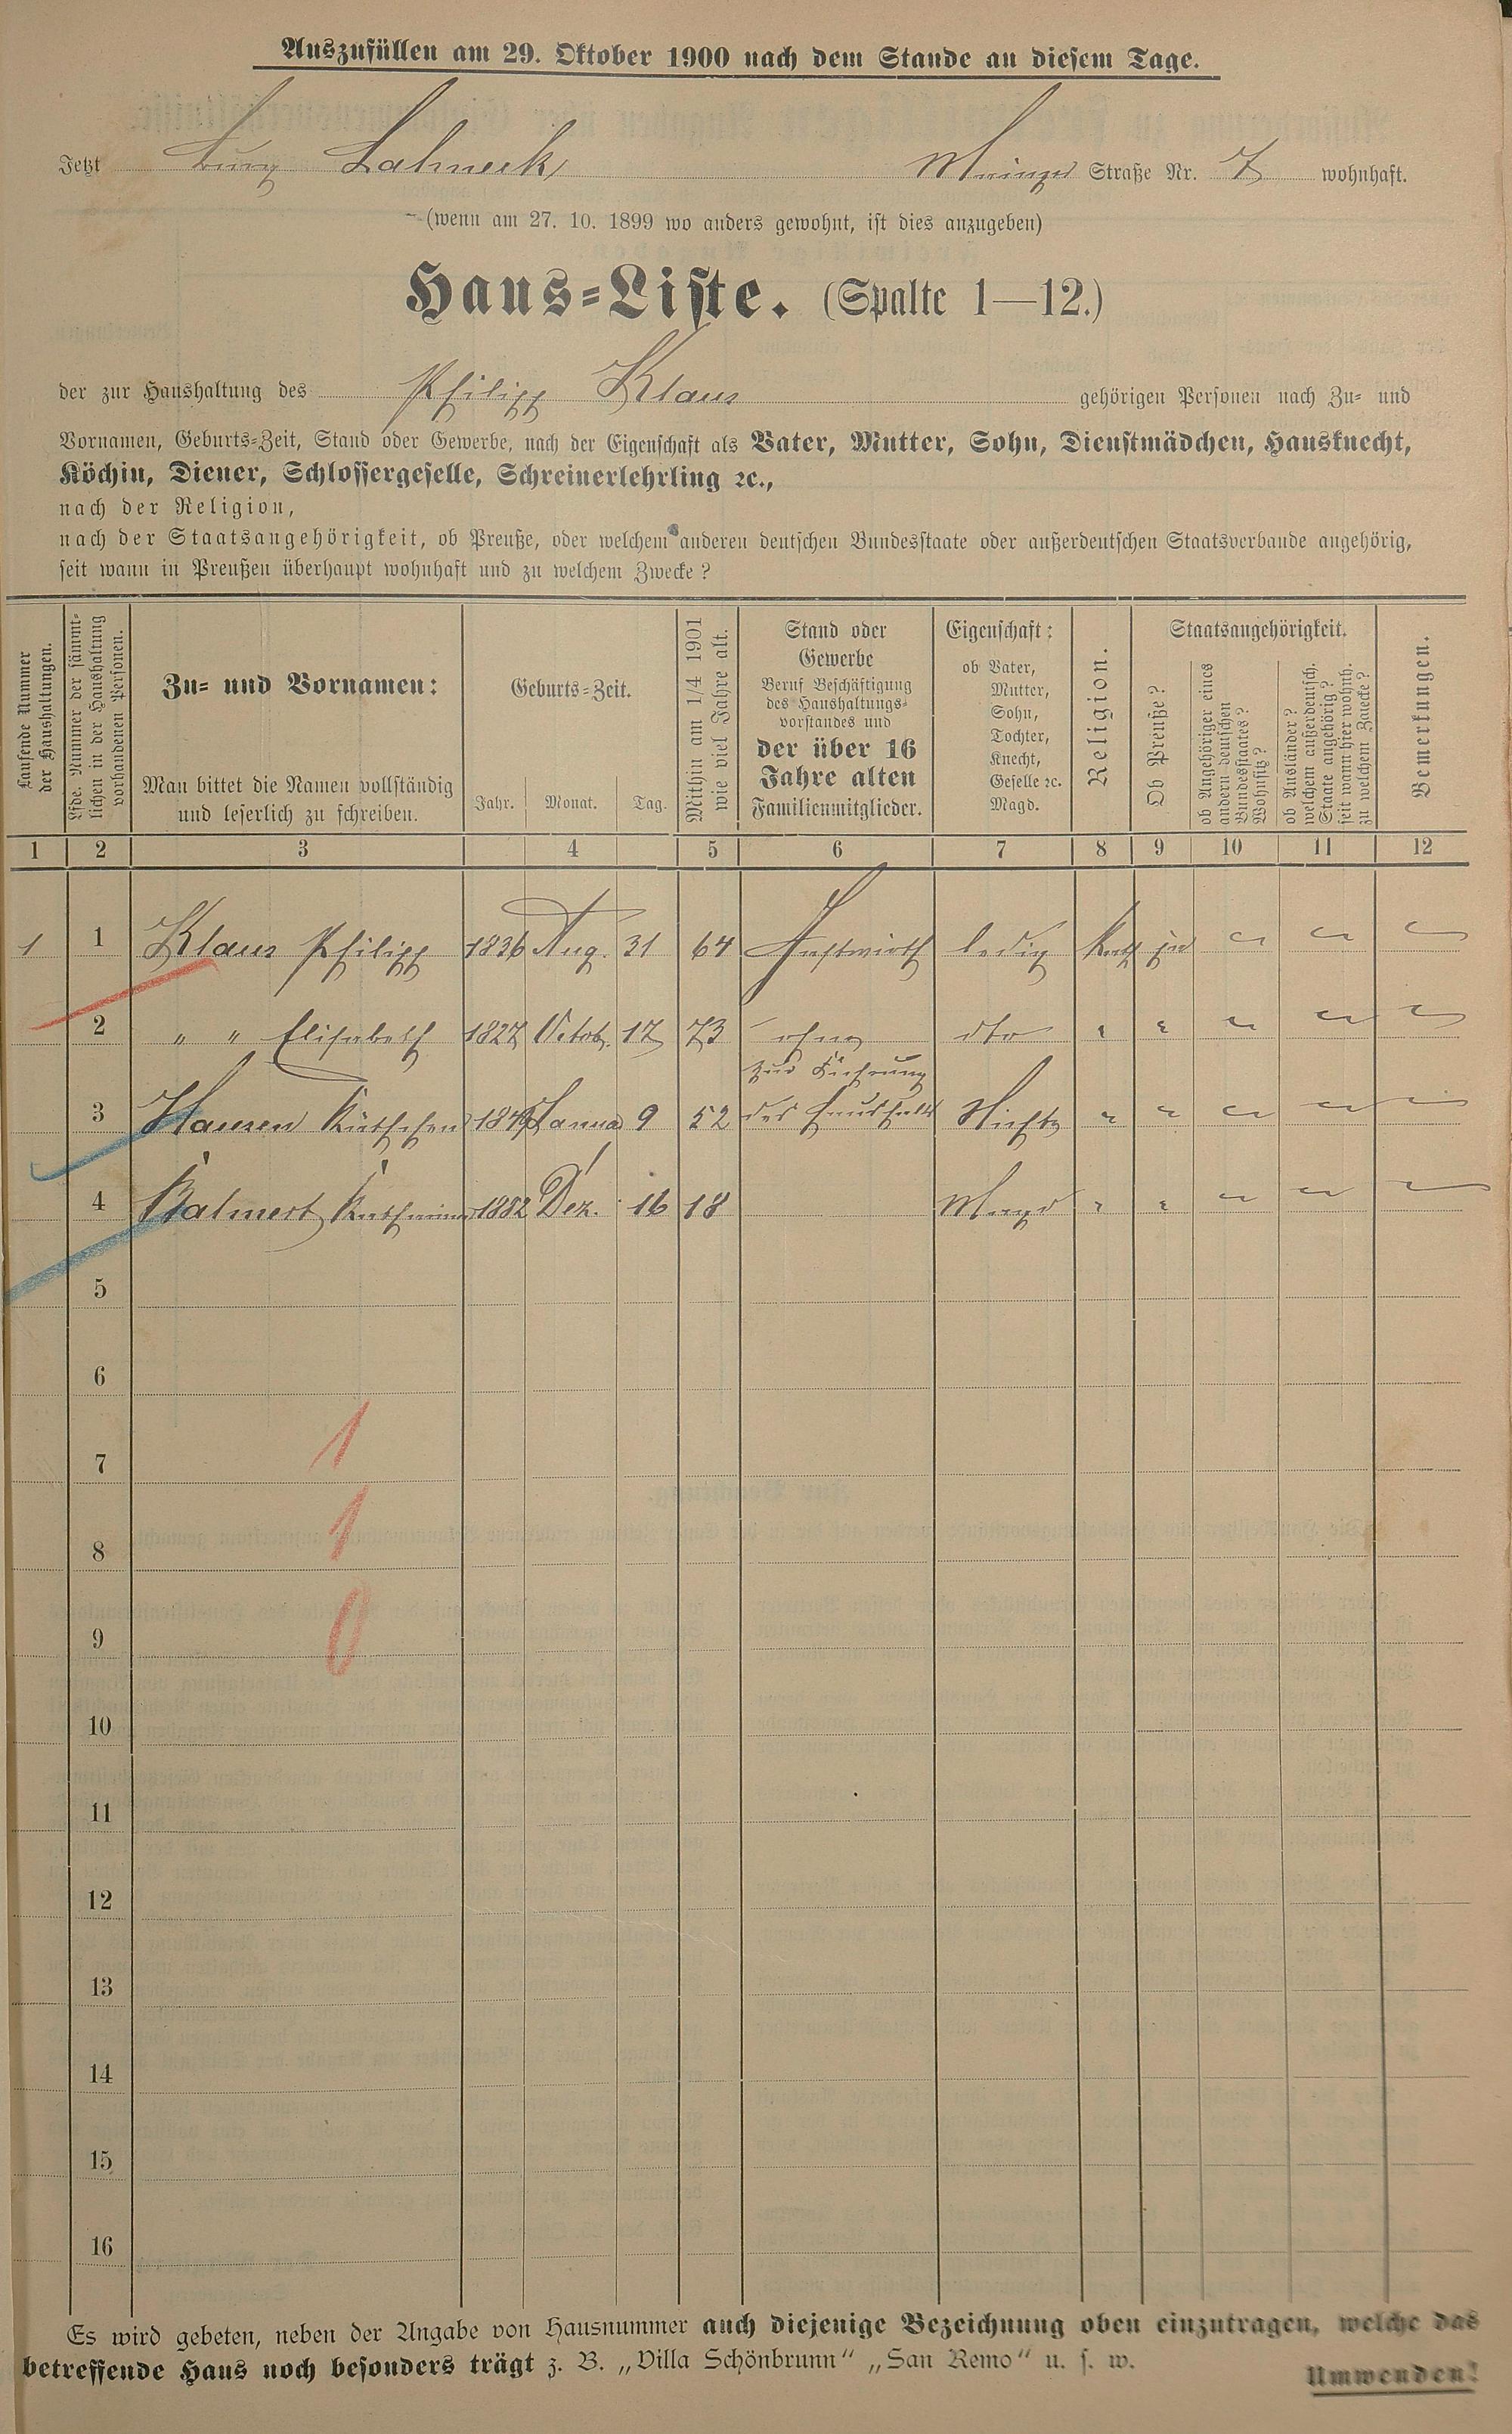 Auszufüllen am 29. Oktober 1900 nach dem Stande an diesem Tage.
Jetzt Burg Lahneck, Mainzer Straße Nr. 7 wohnhaft.
(wenn am 27. 10. 1899 wo anders gewohnt, ist dies anzugeben)
Haus-Liste. (Spalte 1—12.)
der zur Haushaltung des Philipp Klaus gehörigen Personen nach Zu- und
Vornamen, Geburts-Zeit, Stand oder Gewerbe, nach der Eigenschaft als Vater, Mutter, Sohn, Dienstmädchen, Hausknecht,
Köchin, Diener, Schlossergeselle, Schreinerlehrling ꝛc.,
nach der Religion,
nach der Staatsangehörigkeit, ob Preuße, oder welchem anderen deutschen Bundesstaate oder außerdeutschen Staatsverbande angehörig,
seit wann in Preußen überhaupt wohnhaft und zu welchem Zwecke?
Laufende Nummer
der Haushaltungen.
Lfde. Nummer der sämmt-
lichen in der Haushaltung
vorhandenen Personen.
Zu- und Vornamen:
Man bittet die Namen vollständig
und leserlich zu schreiben.
Geburts-Zeit.
Jahr. Monat. Tag.
Mithin am 1/4 1901
wie viel Jahre alt.
Stand oder
Gewerbe
Beruf Beschäftigung
des Haushaltungs-
vorstandes und
der über 16
Jahre alten
Familienmitglieder.
Eigenschaft:
ob Vater,
Mutter,
Sohn,
Tochter,
Knecht,
Geselle ꝛc.
Magd.
Religion.
Staatsangehörigkeit.
Ob Preuße?
ob Angehöriger eines
andern deutschen
Bundesstaates?
Wohnsitz?
ob Ausländer?
welchem außerdeutsch.
Staate angehörig?
seit wann hier wohnh.
zu welchem Zwecke?
Bemerkungen.
1 2 3 4 5 6 7 8 9 10 11 12
1 1 Klaus Philipp 1836 Aug. 31 64 Gastwirth ledig Kath ja
2 " " Elisabeth 1827 Octob. 17 73 ohne dto " "
zur Führung
3 Hausen Käthchen 1849 Januar 9 52 des Haushalts Nichte " "
4 Balmert Katharina 1882 Dez. 16 18 Magd " "
5
6
7 1
8 1
9 0
10
11
12
13
14
15
16
Es wird gebeten, neben der Angabe von Hausnummer auch diejenige Bezeichnung oben einzutragen, welche das
betreffende Haus noch besonders trägt z. B. „Villa Schönbrunn“ „San Remo“ u. s. w.
Umwenden!